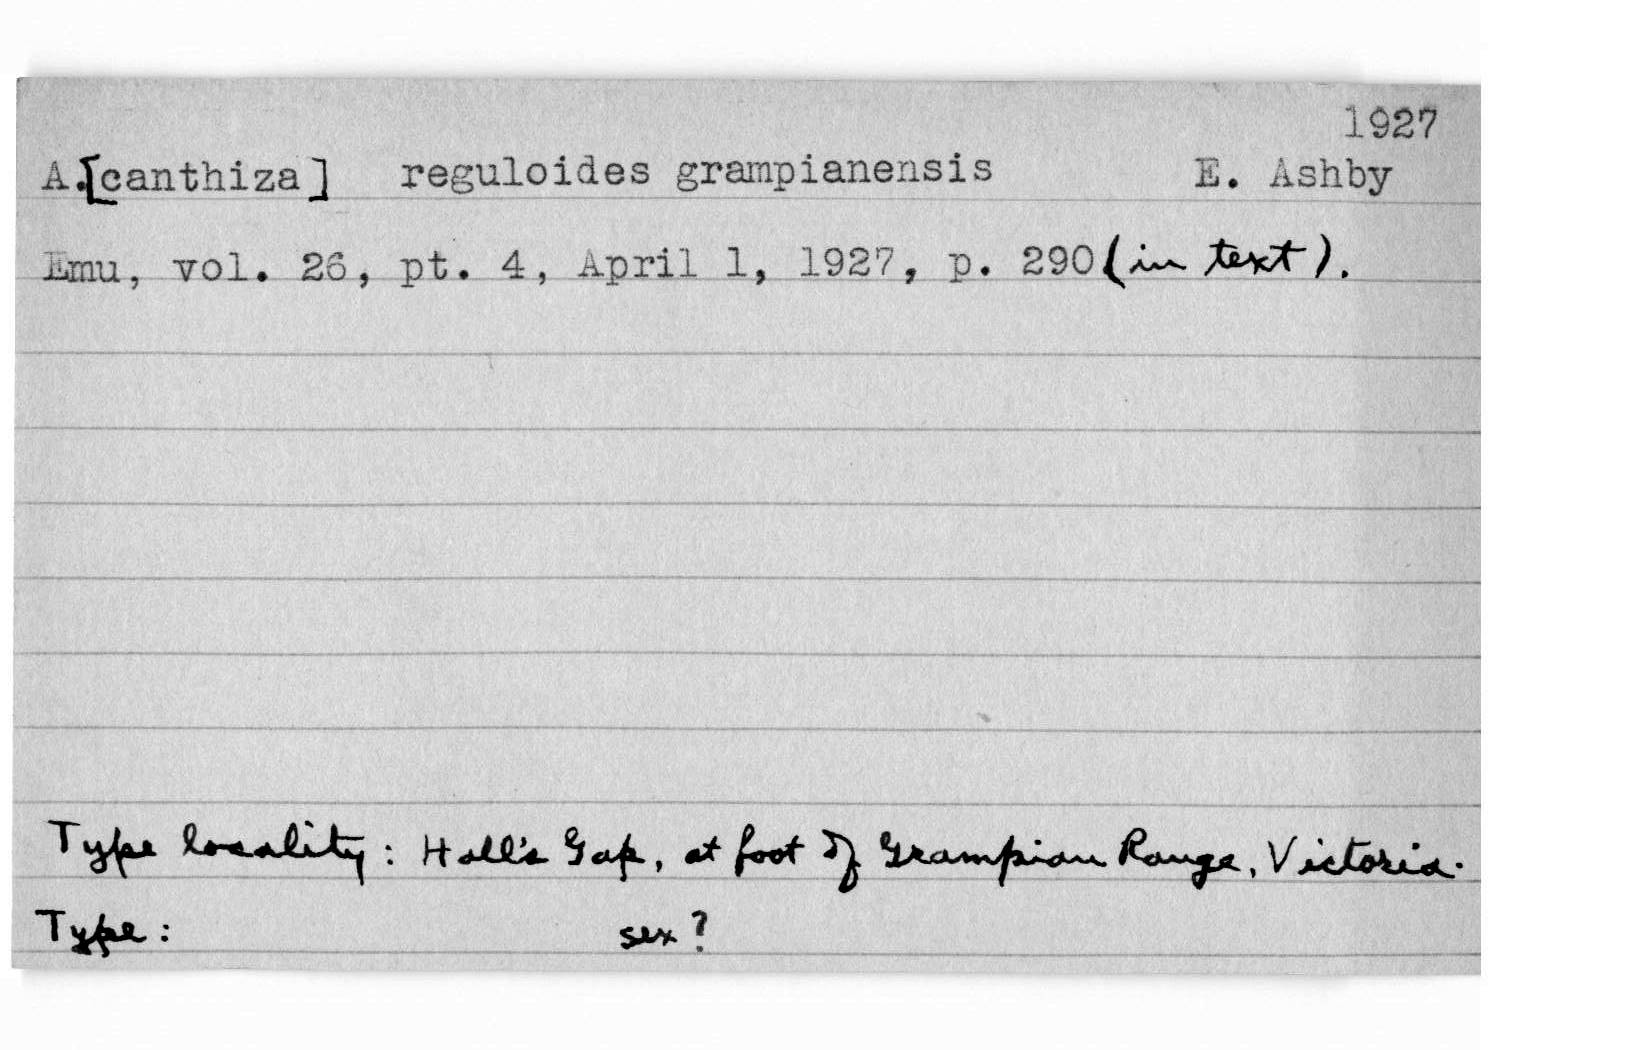 1927
A.[canthiza] reguloides grampianensis E. Ashby
Emu, vol. 26, pt. 4, April 1, 1927, p. 290 (in text).
Type locality: Hall's Gap, at foot of Grampian Range, Victoria.
Type: sex?